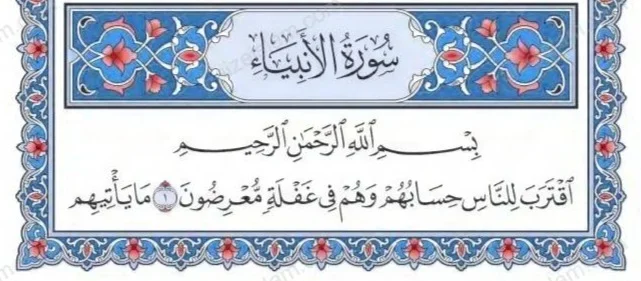 سُورَةُ الأَنبِيَاءِ
بِسْمِ ٱللَّهِ ٱلرَّحْمَٰنِ ٱلرَّحِيمِ
ٱقْتَرَبَ لِلنَّاسِ حِسَابُهُمْ وَهُمْ فِى غَفْلَةٍ مُّعْرِضُونَ ١ مَا يَأْتِيهِم